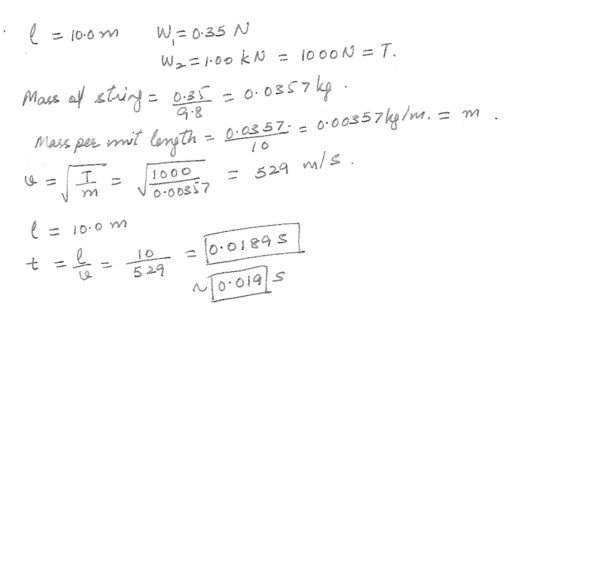 l = 10.0 m W₁ = 0.35 N
W₂ = 1.00 kN = 1000 N = T.
Mass of string = 0.35/9.8 = 0.0357 kg.
Mass per unit length = 0.0357/10 = 0.00357 kg/m. = m.
v = √(T/m) = √(1000/0.00357) = 529 m/s.
l = 10.0 m
t = l/v = 10/529 = 0.0189 s
~ 0.019 s